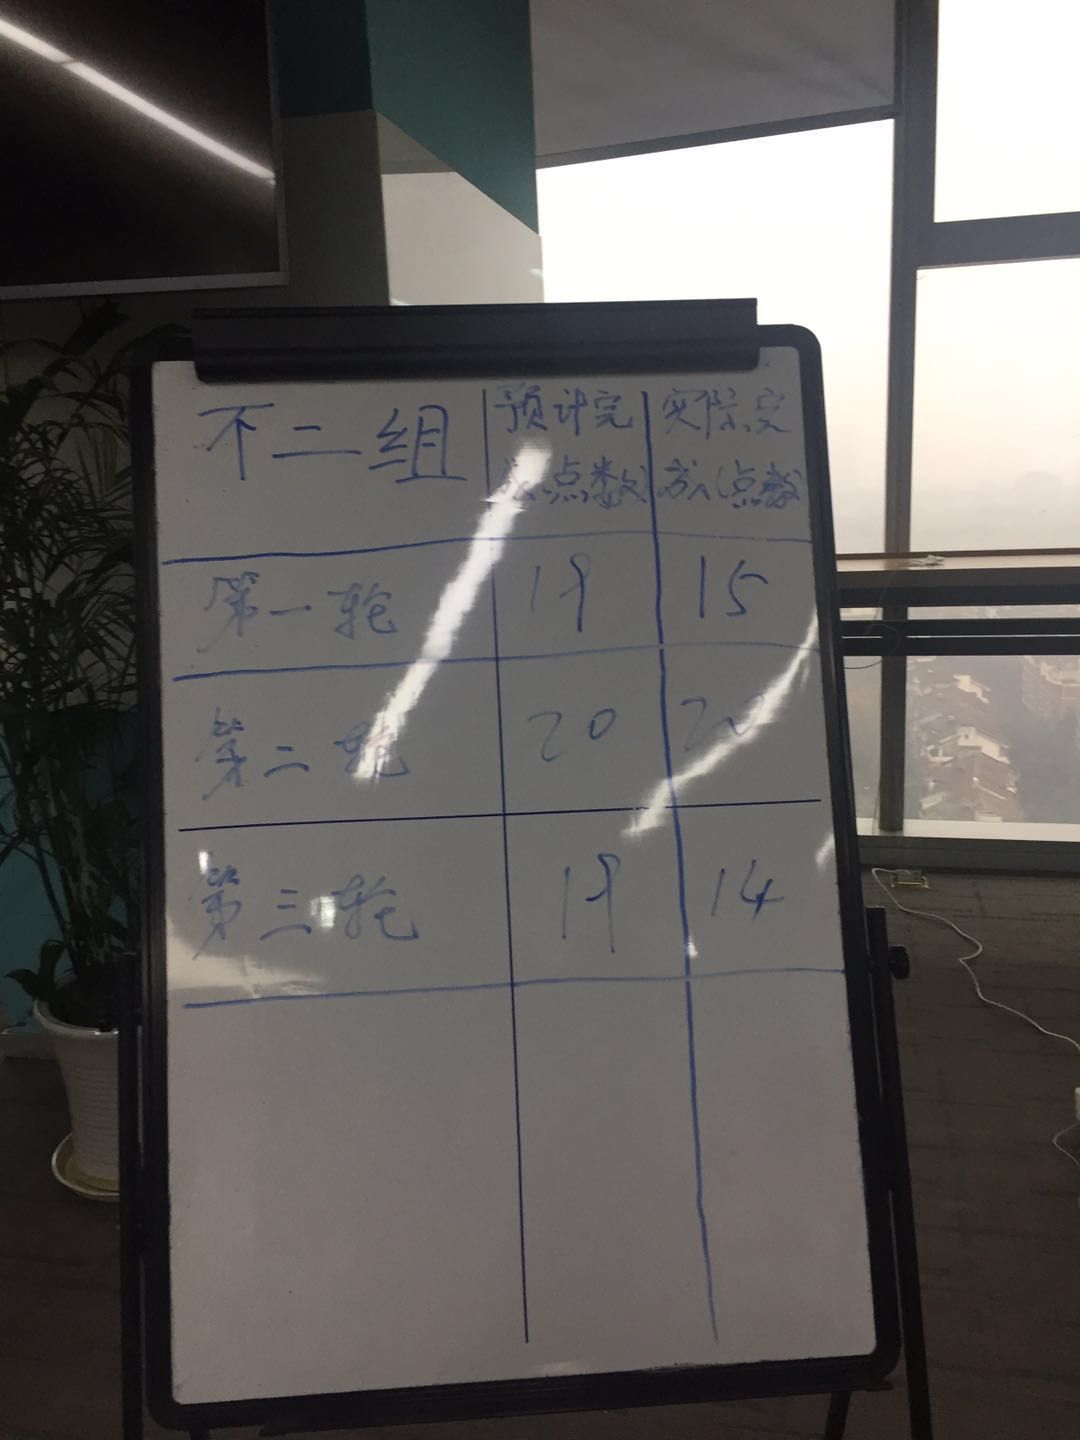 不二组 预计完 实际完
成点数 成点数
第一轮 19 15
第二轮 20 20
第三轮 19 14